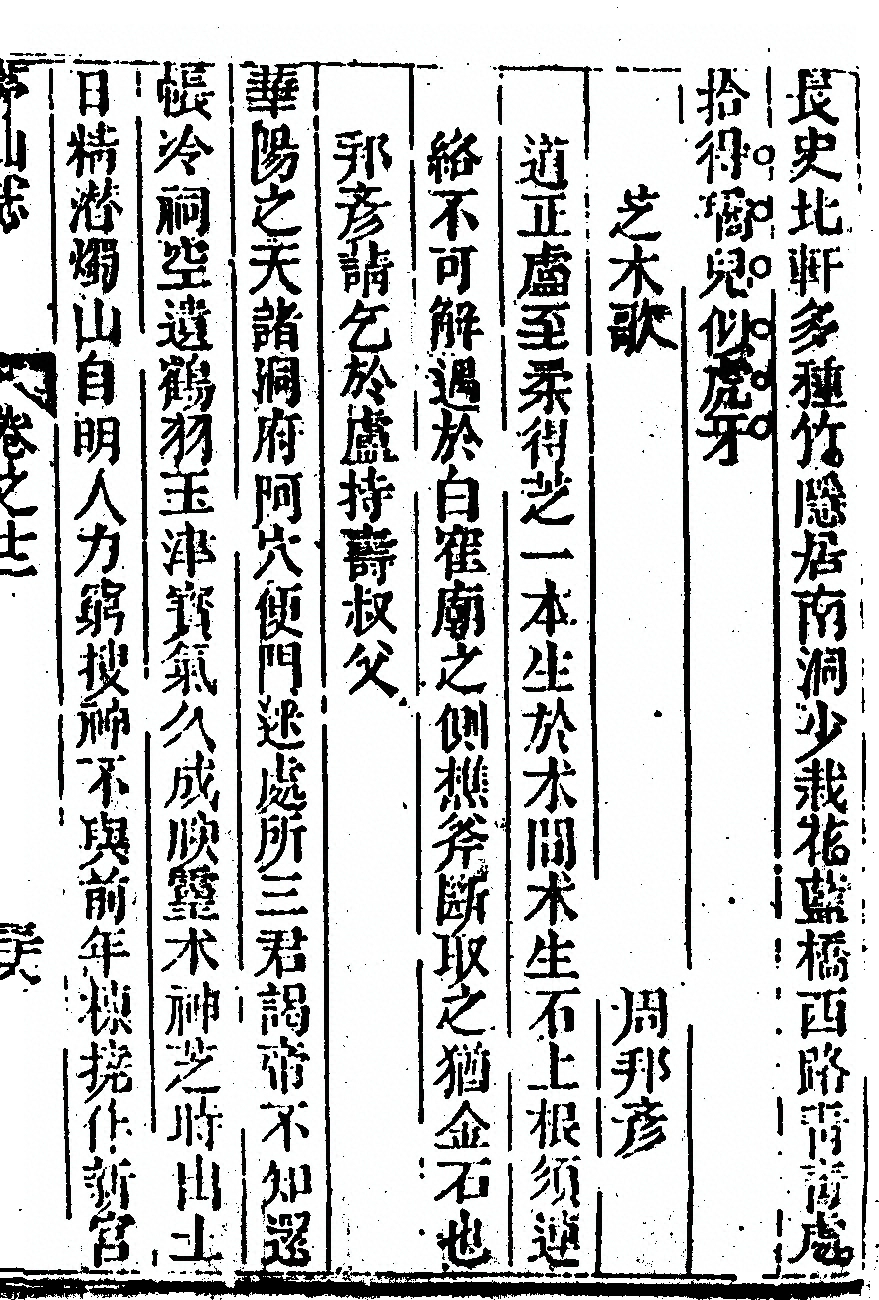 長史北軒多種竹隱居南洞少栽花藍橋西路青青處
拾得瑿兒似虎牙
芝木歌 周邦彥
道正盧至柔得芝一本生於木間术生石上根須連
絡不可解遇於白崔廟之側樵斧斷取之猶金石也
邦彥請乞於盧持壽叔父
華陽之天諸洞府阿穴便門迷處所三君謁帝不知還
帳冷祠空遺鶴羽玉津寶氣久成腴靈术神芝時出土
日精潛燭山自明人力窮搜神不與前年棟撓作新宮
茅山志 卷之十一 二六